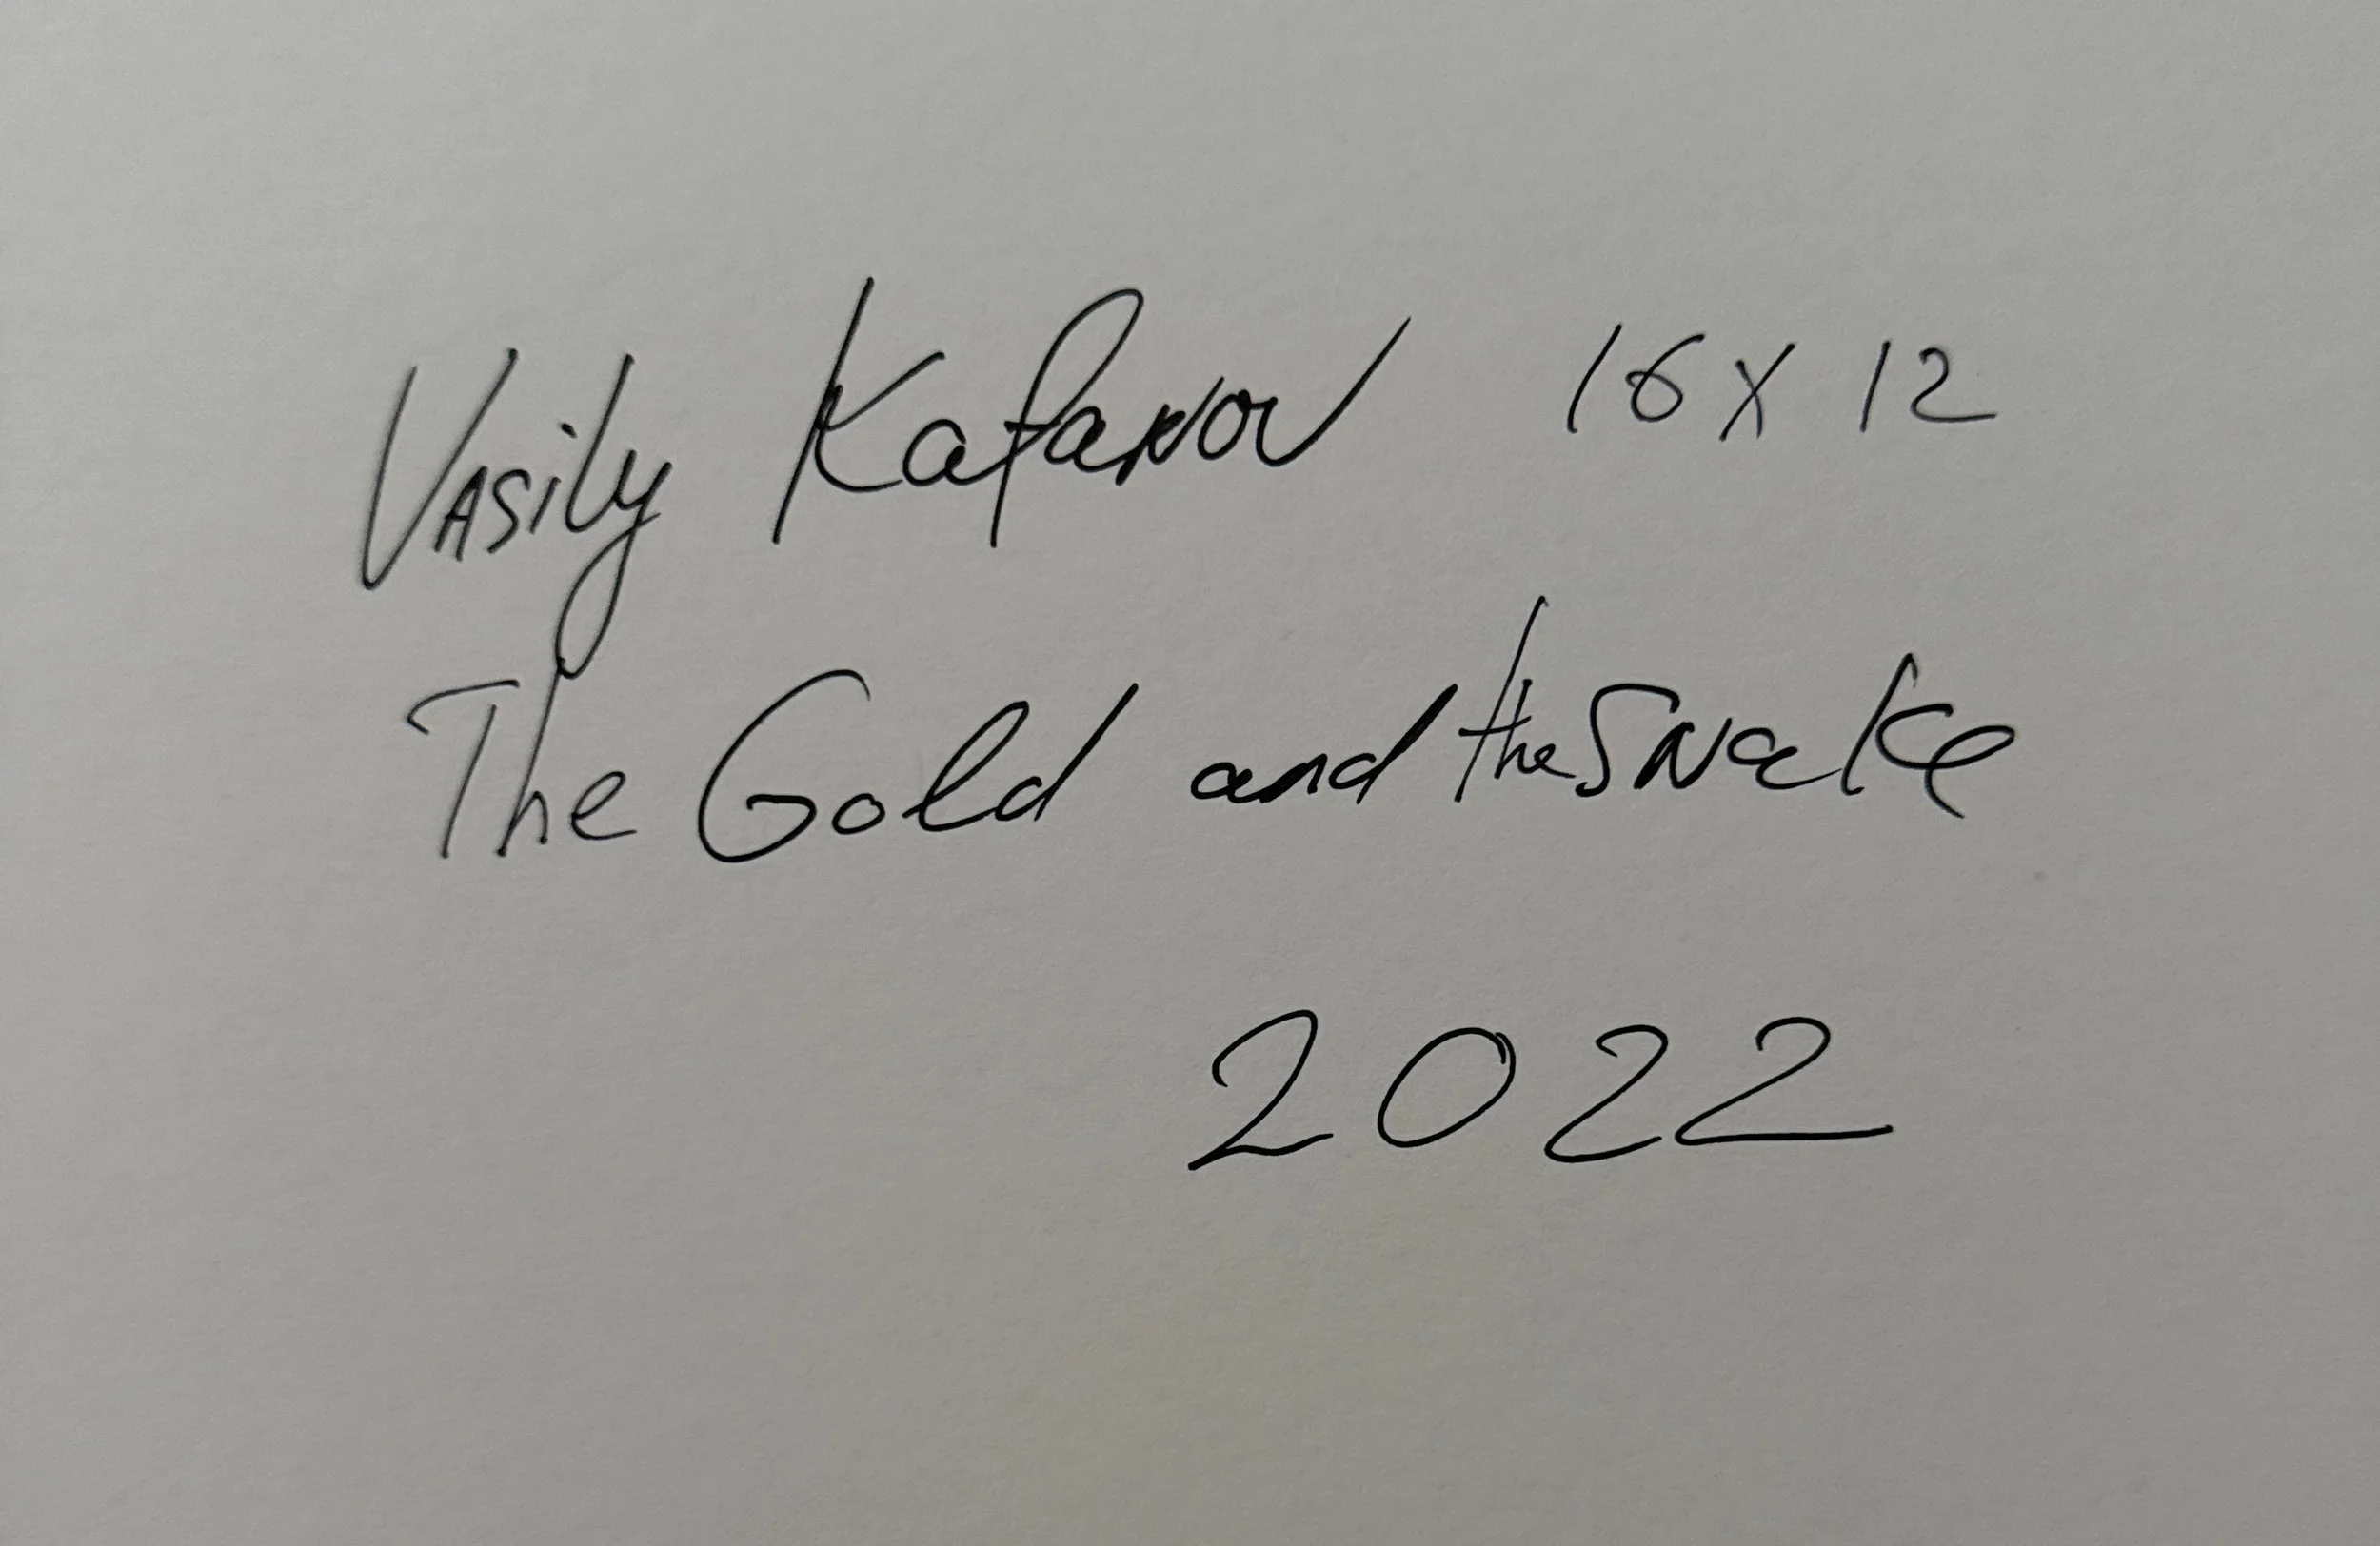 Vasily Kafanov 16 X 12
The Gold and the Snake
2022